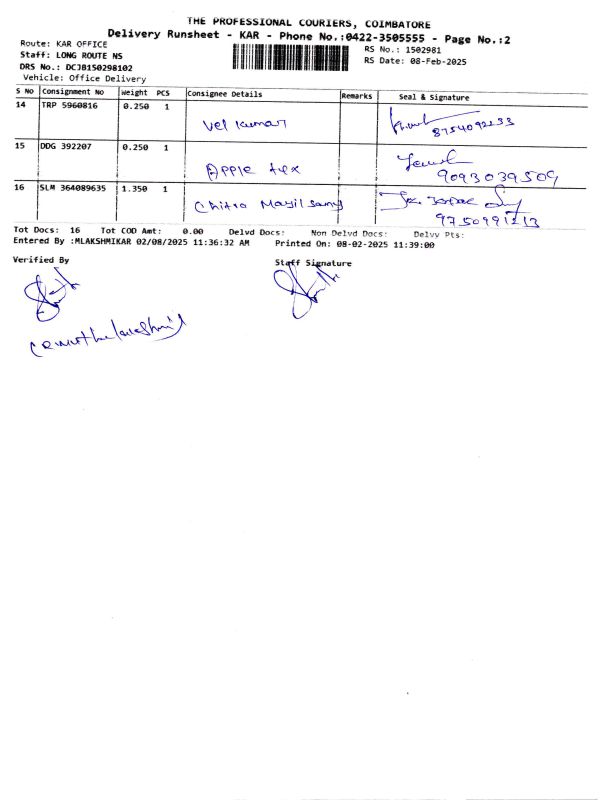 THE PROFESSIONAL COURIERS, COIMBATORE
Delivery Runsheet - KAR - Phone No.:0422-3505555 - Page No.:2
Route: KAR OFFICE
RS No.: 1502981
Staff: LONG ROUTE NS
RS Date: 08-Feb-2025
DRS No.: DCJB150298102
Vehicle: Office Delivery
S No Consignment No Weight PCS Consignee Details Remarks Seal & Signature
14 TRP 5960816 0.250 1
Vel Kumar
8754092233
15 DDG 392207 0.250 1
Apple tex
9093039509
16 SLM 364089635 1.350 1
Chitra Mayilsamy
9750991213
Tot Docs: 16 Tot COD Amt: 0.00 Delvd Docs: Non Delvd Docs: Delvy Pts:
Entered By :MLAKSHMIKAR 02/08/2025 11:36:32 AM Printed On: 08-02-2025 11:39:00
Verified By Staff Signature